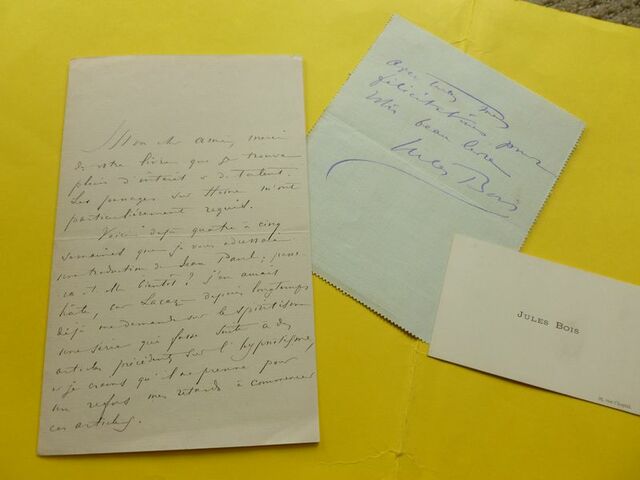 Mon cher ami, merci
de votre livre que je trouve
plein d'intérêt & de talent.
Les passages sur Heine m'ont
particulièrement requis.
Voici déjà quatre à cinq
semaines que je vous adressais
une traduction de Jean Paul;
ca-t-elle bientôt? j'en aurais
hâte, car depuis longtemps
déjà me demande sur le spiritisme
une série qui fasse suite à des
articles précédents sur l'hypnotisme,
& je crains qu'il ne prenne pour
un refus mes retards à commencer
ces articles.
Avec mes
félicitations pour
votre beau livre
Jules Bois
JULES BOIS